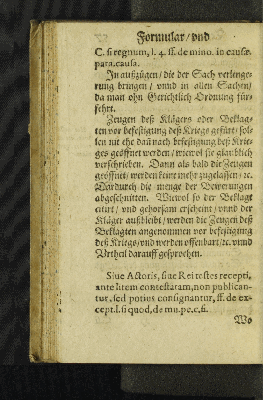 Formular / vnd
C. si regnum, l. 4. ff. de mino. in causæ.
para. causa.
In außzügen / die der Sach verlenge-
rung bringen / vnnd in allen Sachen /
da man ohn Gerichtlich Ordnung für-
fehrt.
Zeugen deß Klägers oder Beklag-
ten vor befestigung deß Kriegs gefürt / sol-
len nit ehe dañ nach befestigung deß Krie-
ges geöffnet werden / wiewol sie glaublich
verschrieben. Dann als bald die Zeugen
geöffnet / werden keine mehr zugelassen / ꝛc.
Dardurch die menge der Bewerungen
abgeschnitten. Wiewol so der Beklagt
citirt / vnd gehorsam erscheint / vnnd der
Kläger außbleibt / werden die Zeugen deß
Beklagten angenommen vor befestigung
deß Kriegs / vnd werden offenbart / ꝛc. vnnd
Vrtheil darauff gesprochen.
Siue Actoris, siue Rei testes recepti,
ante litem contestatam, non publican-
tur, sed potius consignantur, ff. de ex-
cept. l. si quod, de mu. pe. c. fi.
Wo